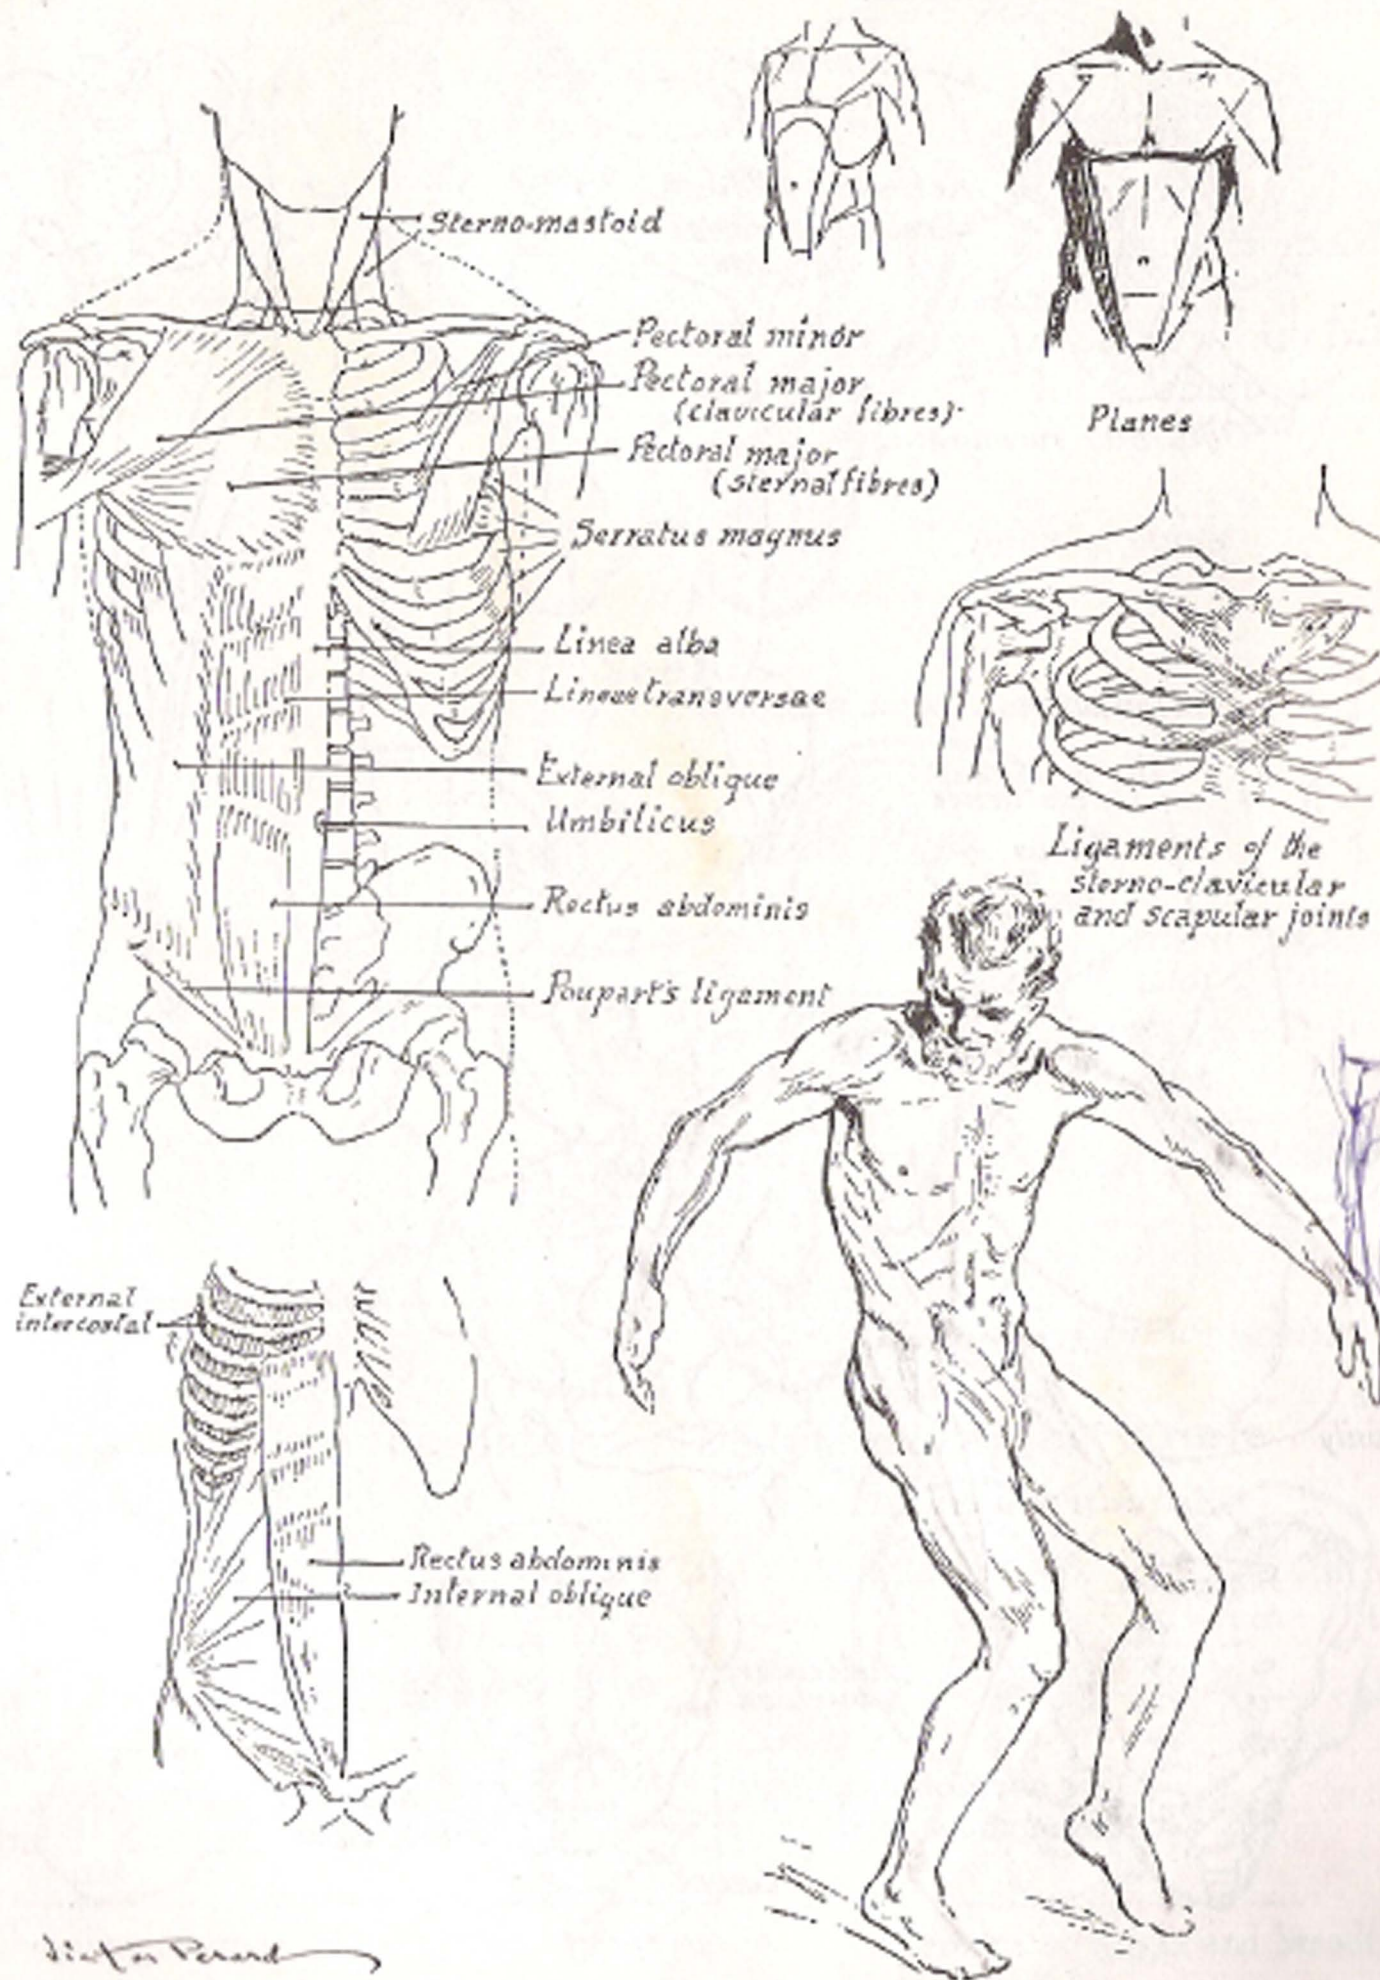 Sterno-mastoid
Pectoral minor
Pectoral major
(clavicular fibres)
Pectoral major
(sternal fibres)
Serratus magnus
Linea alba
Lineae transversae
External oblique
Umbilicus
Rectus abdominis
Poupart's ligament
Planes
Ligaments of the
sterno-clavicular
and scapular joints
External
intercostal
Rectus abdominis
Internal oblique
Victor Perard